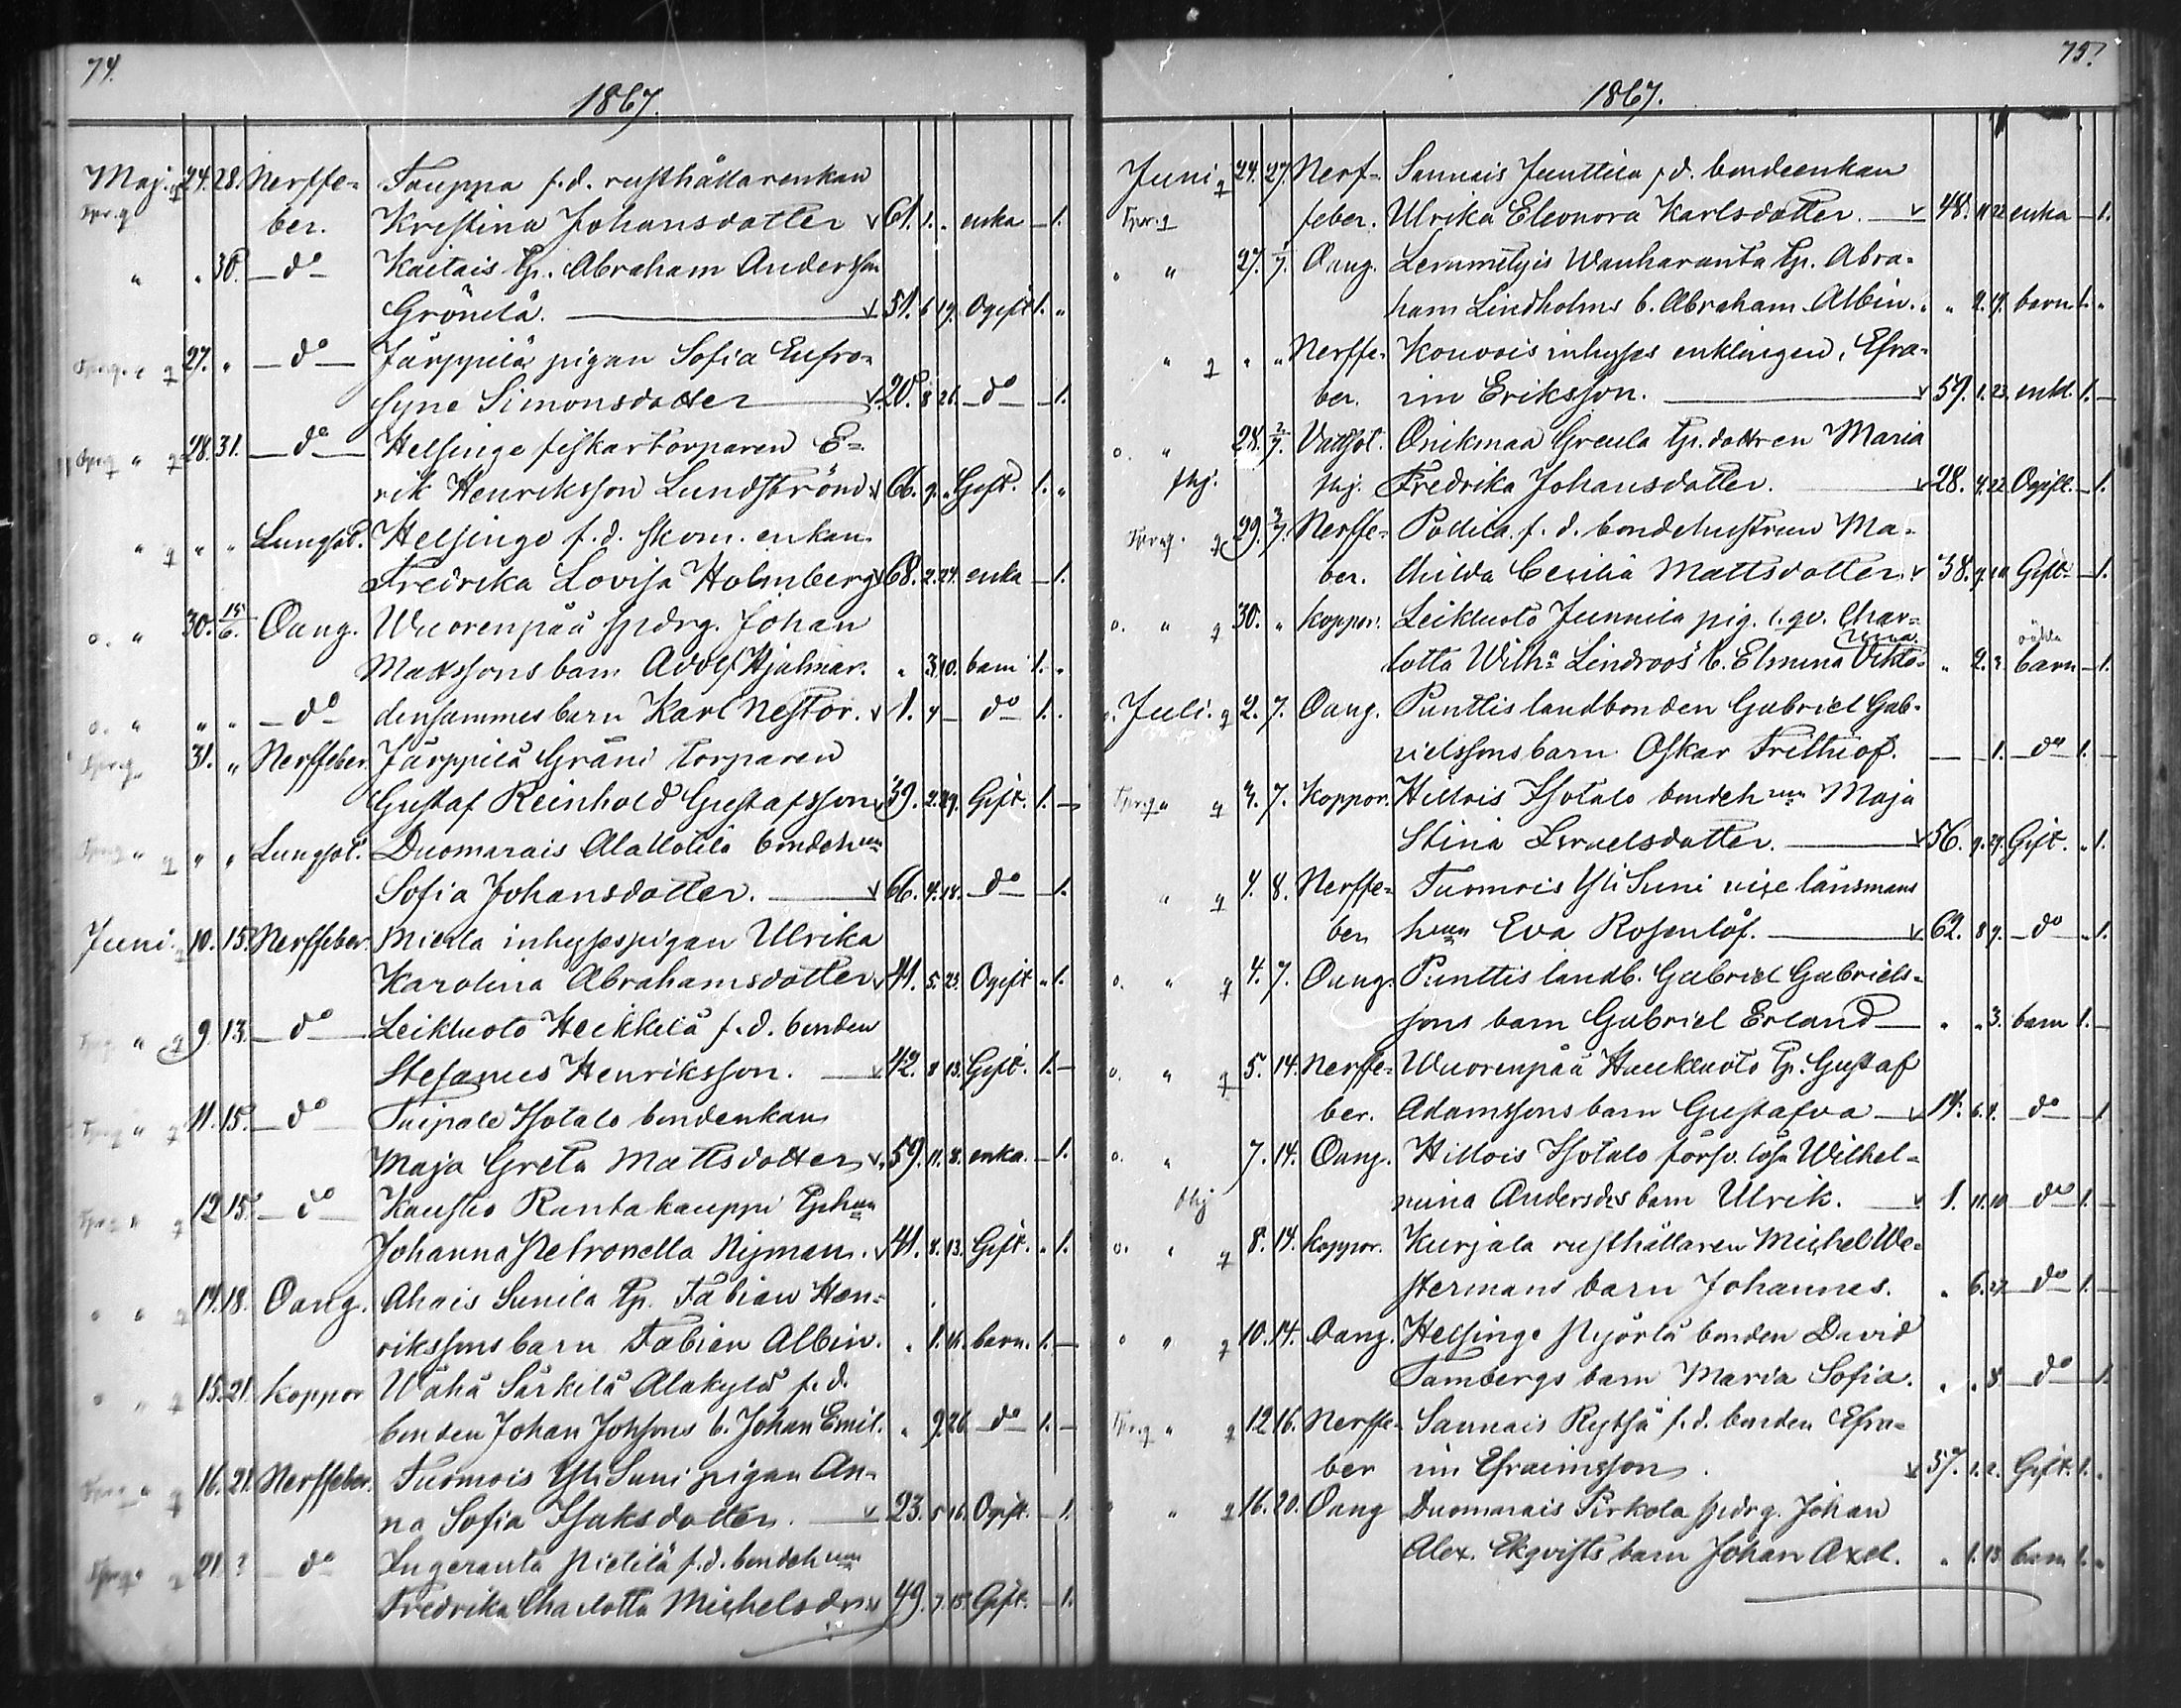 74.
1867.
Maj. 24. 28. Nerffe- Tauppa f.d. rusthållarenkan
ber. Kristina Johansdotter 61. 1. enka 1.
" " 30. d:o Kaitais tp. Abraham Andersson
Grönclä. 51. 6 19. Ogift 1. "
27. " d:o Järppilä pigan Sofia Eufro-
syne Simonsdotter 20. 8 26. d:o 1.
" 28. 31. d:o Helsinge fiskartorparen E-
rik Henriksson Lundström 66. 9. " Gift. 1. "
" " " Lungsot. Helsinge f.d. skom. enkan
Fredrika Lovisa Holmberg 68. 2. 24. enka 1.
o. " 30. 15/6. Oang. Wuorenpää spdrg. Johan
Mattssons barn Adolf Hjalmar. " 3. 10. barn 1. "
o. " " " d:o densammes barn Karl Nestor. 1. 4 d:o 1.
31. " Nerffeber. Järppilä Gräni torparen
Gustaf Reinhold Gustafsson 39. 2. 29. Gift. 1.
" " " Lungsot. Duomarais Alallotila bondehun
Sofia Johansdotter. 66. 4. 18. d:o 1.
Juni. 10. 15. Nerffeber. Mierla inhysespigan Ulrika
Karolina Abrahamsdotter 44. 5. 23. Ogift " 1.
" 9. 13. d:o Leikluoto Heikkilä f.d. bonden
Stefanus Henriksson. 42. 8 13. Gift. 1.
" 11. 15. d:o Taipale Isotalo bondenkan
Maja Greta Mattsdotter 59. 11. 8. enka. 1.
" 12. 15. d:o Kaustio Rantakauppi tphun
Johanna Petronella Nyman. 41. 8. 13. Gift. " 1.
" " 14. 18. Oang. Ahais Sunila tp. Fabian Hen-
rikssons barn Fabian Albin. " 1. 16. barn. 1.
" " 15. 21. Koppor Wähä Särkilä Alakylä f.d.
bonden Johan Johssons b. Johan Emil. " 9. 26. d:o 1.
" 16. 21. Nerffeber. Tuomois Yli Suni pigan An-
na Sofia Isaksdotter. 23. 5 16. Ogift. 1.
" 21. ? d:o Lugeranta Pietilä f.d. bondehun
Fredrika Charlotta Michelsdr. 49. 7. 15. Gift. 1.
75.
1867.
Juni 24. 27. Nerf- Sannais Junttila f.d. bondeenkan
feber. Ulrika Eleonora Karlsdotter. 48. 11 22 enka 1.
" " 27. 1/7. Oang. Lemmetyis Wanharanta tp. Abra-
ham Lindholms b. Abraham Albin. " " 2. 19. barn 1. "
" " " Nerffe- Kouvois inhyses enklingen, Efra-
ber. im Eriksson. 59. 1. 23. enkl. 1.
o. " 28. 2/7. Vattsot. Onikmaa Greula tp. dottren Maria
sthj. sthj. Fredrika Johansdotter. 28. 4. 22. Ogift. 1.
29. 3/7. Nerffe- Podila f.d. bondehustrun Ma-
ber. thilda Cecilia Mattsdotter 38. 9. 20 Gift 1.
o. " 30. " Koppor. Leikluoto Junnila pig. l. qv. Char- oäkta
lotta Wilh:a Lindroos b. Elmina Vikto- " 2. 2. barn 1.
Juli. 2. 7. Oang. Punttis landbonden Gabriel Gab-
rielssons barn Oskar Frithiof. 1. d:o 1.
" 3. 7. Koppor. Hillois Isotalo bondehun Maja
Stina Israelsdotter. 56. 9. 29. Gift. " 1.
" 4. 8. Nerffe- Tuomois Yli Suni vice länsmans
ber hun Eva Rosenlöf. 62. 8 9. d:o " 1.
o. " 4. 7. Oang. Punttis landb. Gabriel Gabriels-
sons barn Gabriel Erland " " 3. barn 1.
o. " 5. 14. Nerffe- Wuorenpää Haukluoto tp. Gustaf
ber. Adamssons barn Gustafva 14. 6. 9. d:o 1
o. " 7. 14. Oang. Hillois Isotalo försv. lösa Wilhel-
sthj mina Andersdrs barn Ulrik. 1. 11. 10 d:o 1.
o. " 8. 14. Koppor. Kurjala rusthållaren Michel We-
stermans barn Johannes. " 6. 27. d:o 1.
" " 10. 14. Oang. Helsinge Pyörlä bonden David
Tambergs barn Maria Sofia. " " 8 d:o 1.
" 12. 16. Nerffe- Sannais Rytsä f.d. bonden Efra-
ber im Efraimsson. 57. 1. 2. Gift. 1.
" 16. 20. Oang Duomarais Pirkola spdrg. Johan
Alex. Ekqvists barn Johan Axel. " 1. 13. barn 1. "